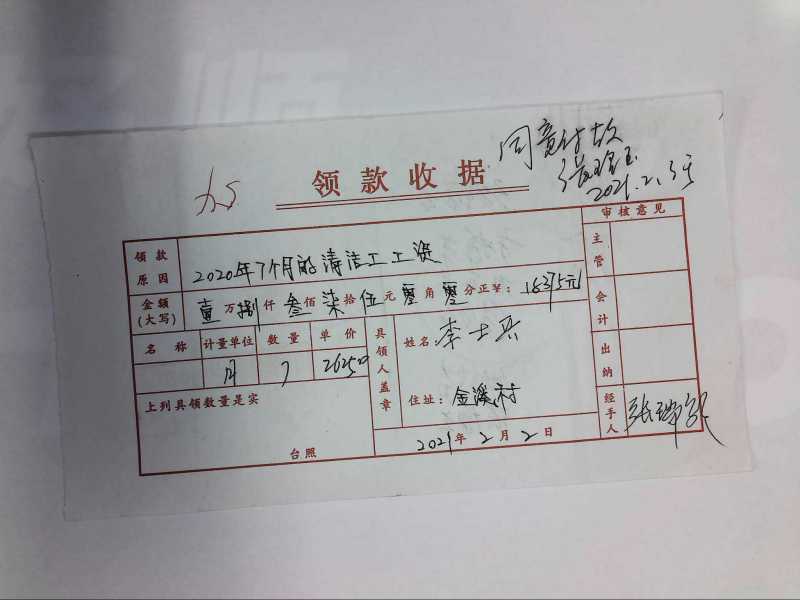 同意付款
2021.2.3号
领款收据
审核意见
领款原因
2020年7个月的清洁工工资
主管
金额(大写)
壹万捌仟叁佰柒拾伍元零角零分正¥:18375元
会计
名称 计量单位 数量 单价
月 7 2625.00
具领人盖章
姓名:李士兴
住址:金溪村
出纳
上列具领数量是实
台照
2021年2月2日
经手人